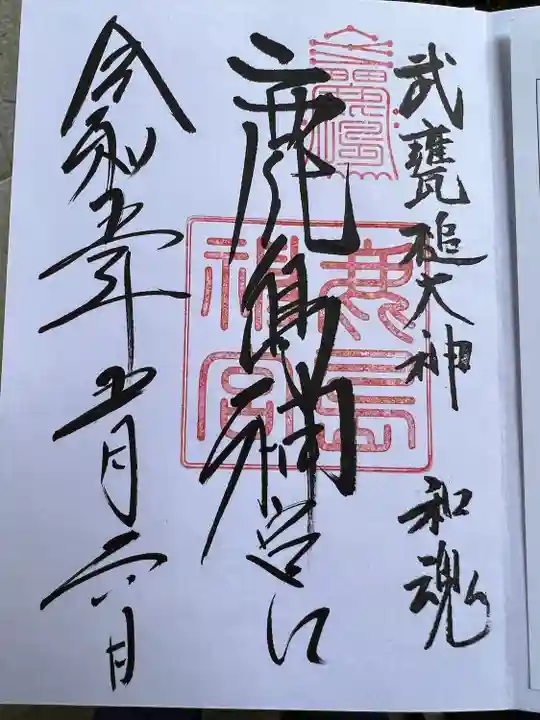 武甕槌大神 和魂
鹿島神宮
令和五年五月六日
鹿島神宮